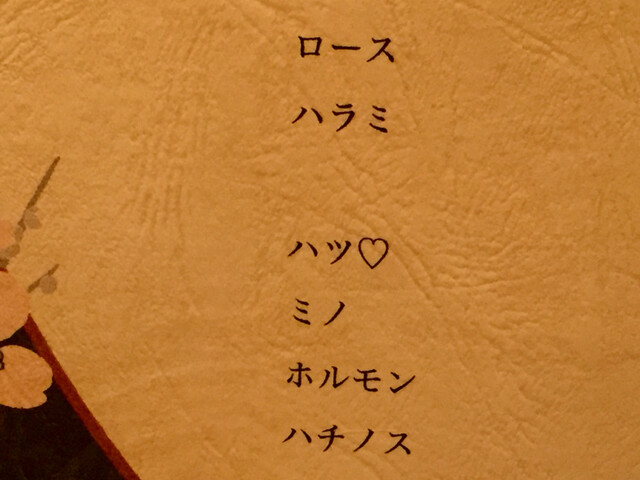 ロース
ハラミ
ハツ♡
ミノ
ホルモン
ハチノス